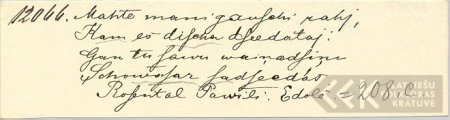 12066. Mahte mani gauschi rahj,
Kam es discha dseedataj:
Gan tu sawu wainadsinu
Schowasar sadseedās
Rosental Pawils. Edolē = 208. c
LATVIEŠU
FOLKLORAS
KRĀTUVE